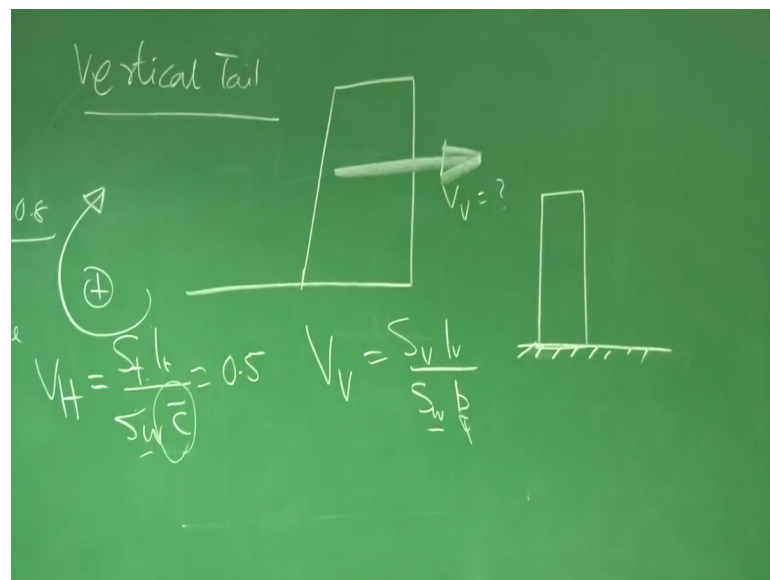 Vertical Tail
V_V = ?
0.8
⊕
V_H = S_t l_t / S_w c̄ = 0.5
V_V = S_v l_v / S_w b